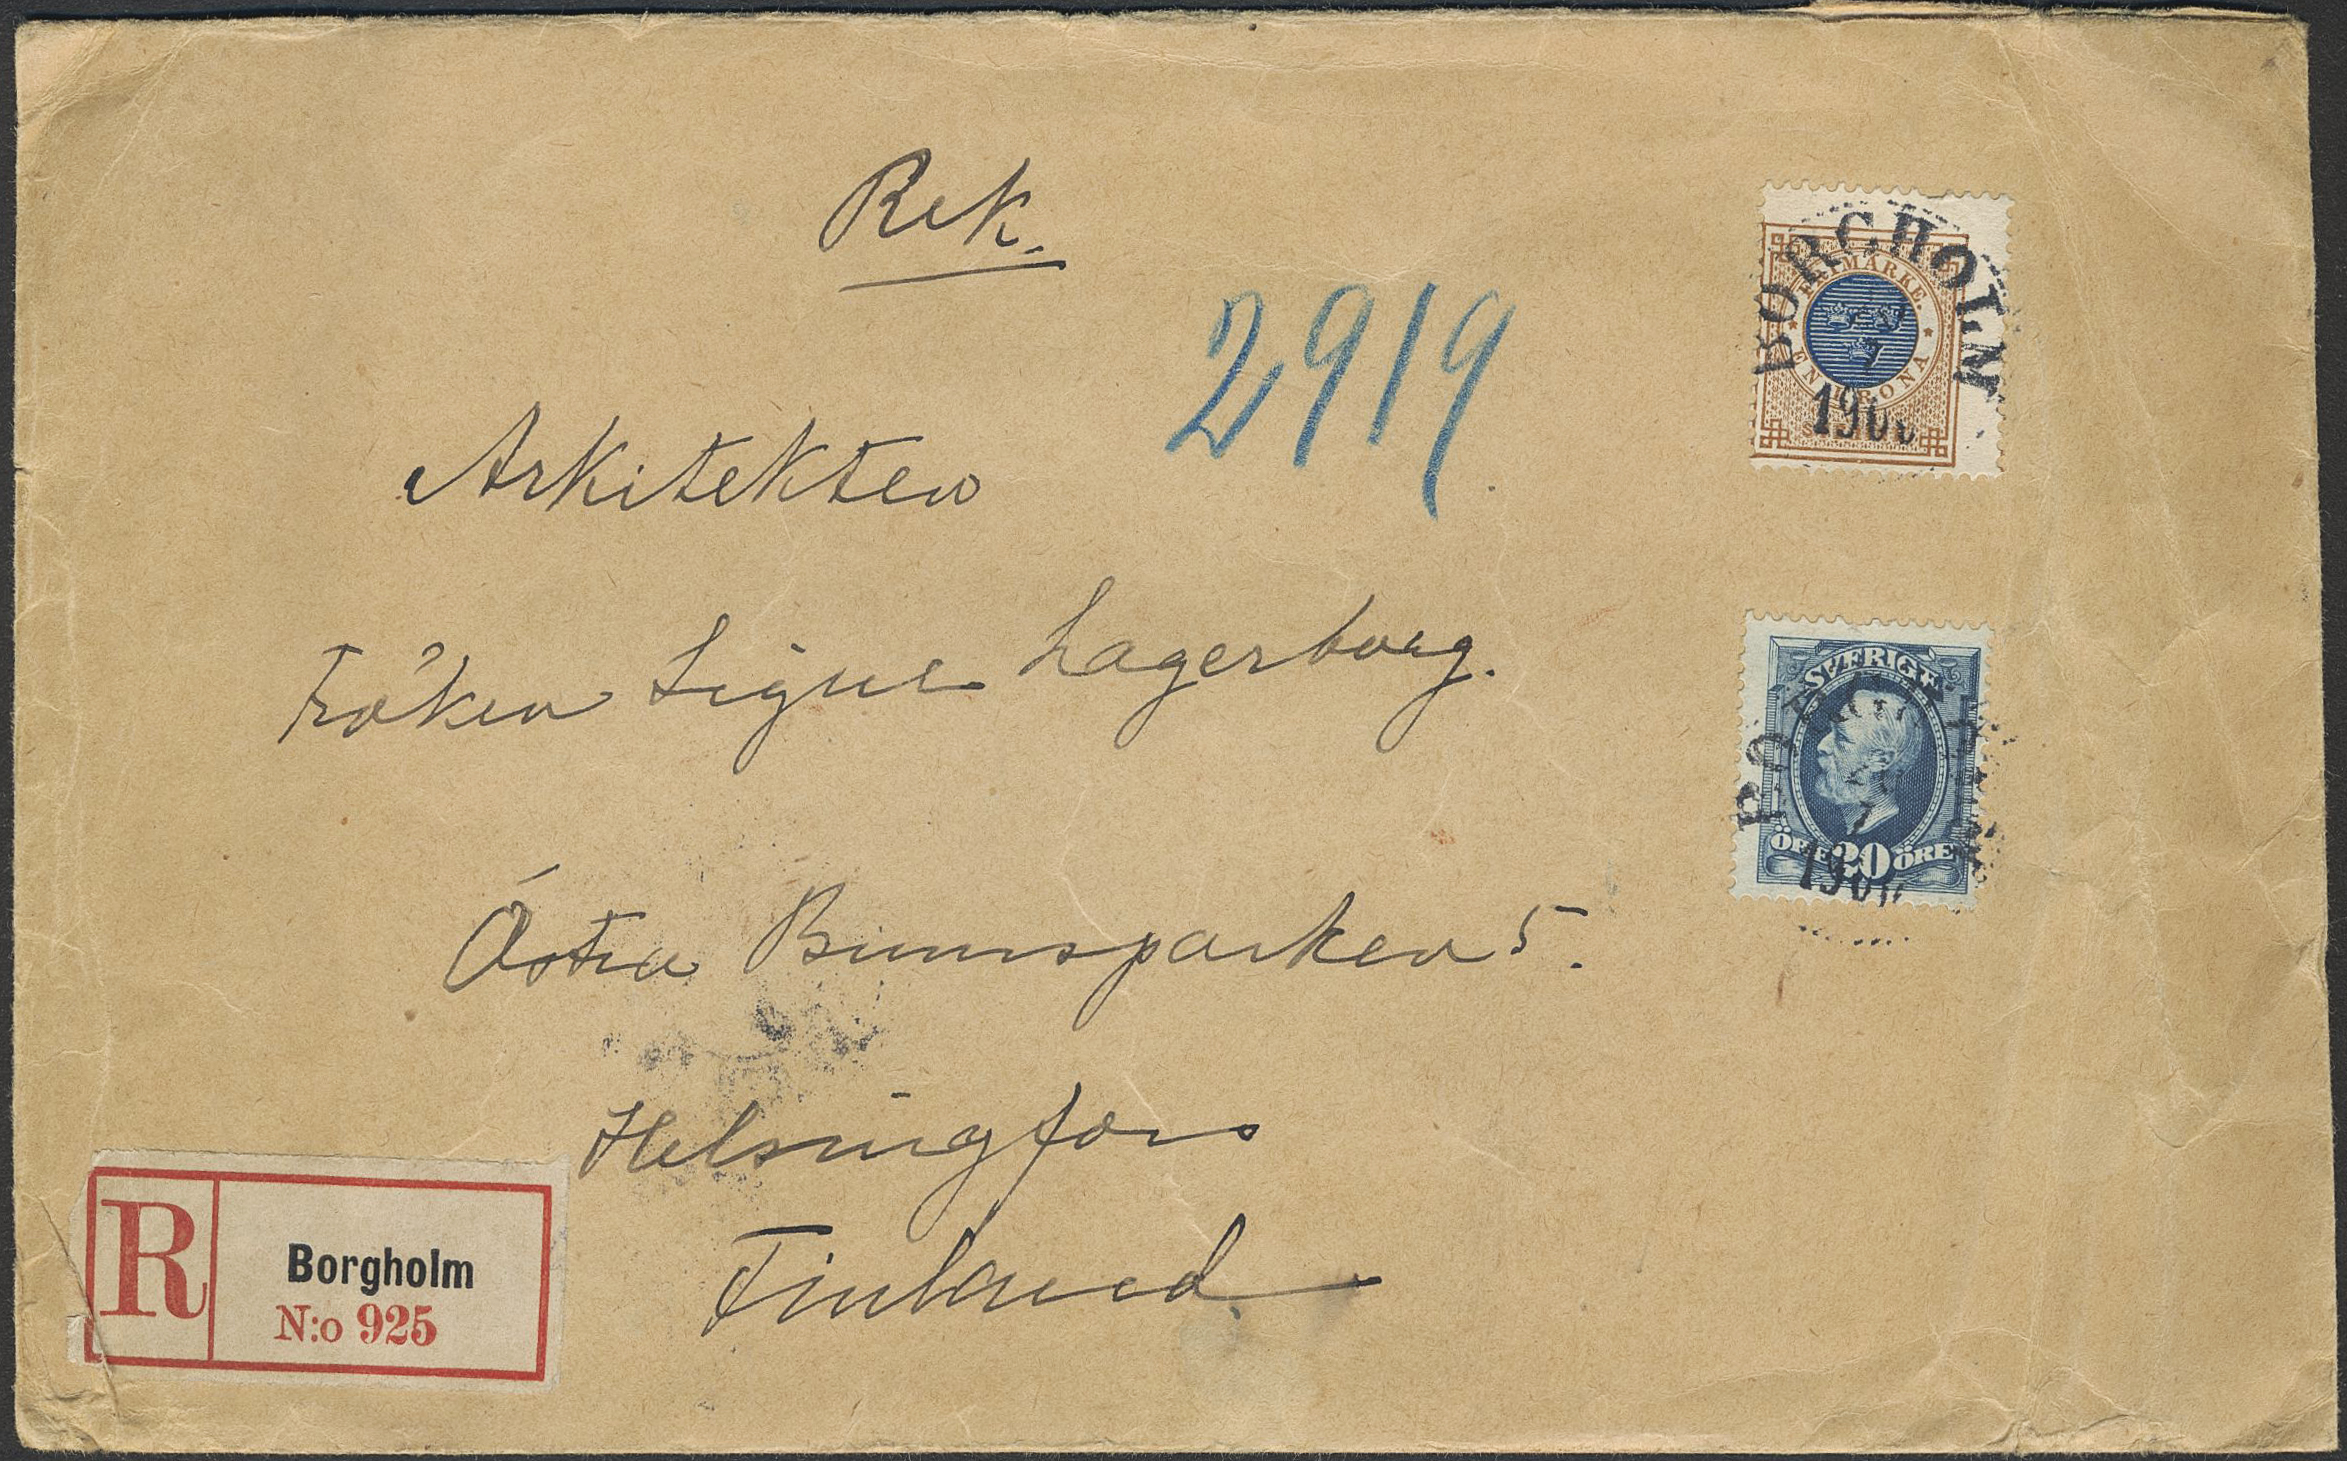 Rek.
2919
Arkitekten
Fröken Signe Lagerborg.
Östra Brunnsparken 5.
Helsingfors
Finland
R
Borgholm
N:o 925
BORGHOLM
7
FRIMÄRKE.
EN KRONA
SVERIGE
7
ÖRE 20 ÖRE